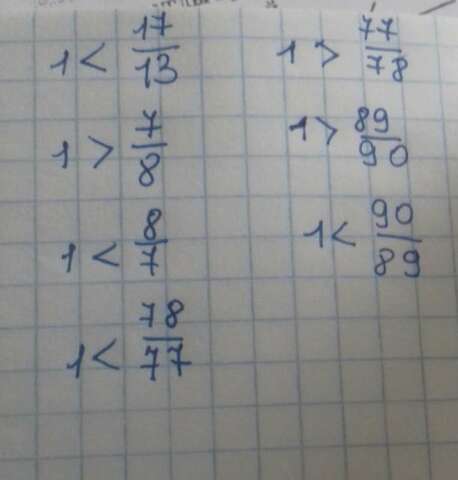 1 < 17/13
1 > 7/8
1 < 8/7
1 < 78/77
1 > 77/78
1 > 89/90
1 < 90/89